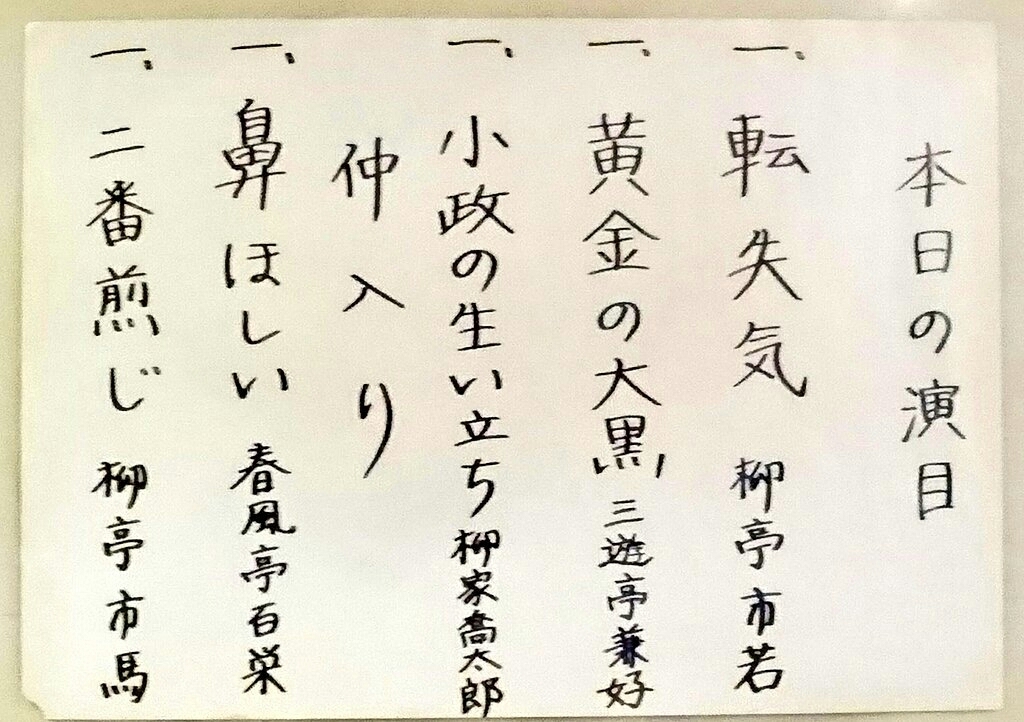 本日の演目
一、転失気 柳亭市若
一、黄金の大黒 三遊亭兼好
一、小政の生い立ち 柳家喬太郎
仲入り
一、鼻ほしい 春風亭百栄
一、二番煎じ 柳亭市馬